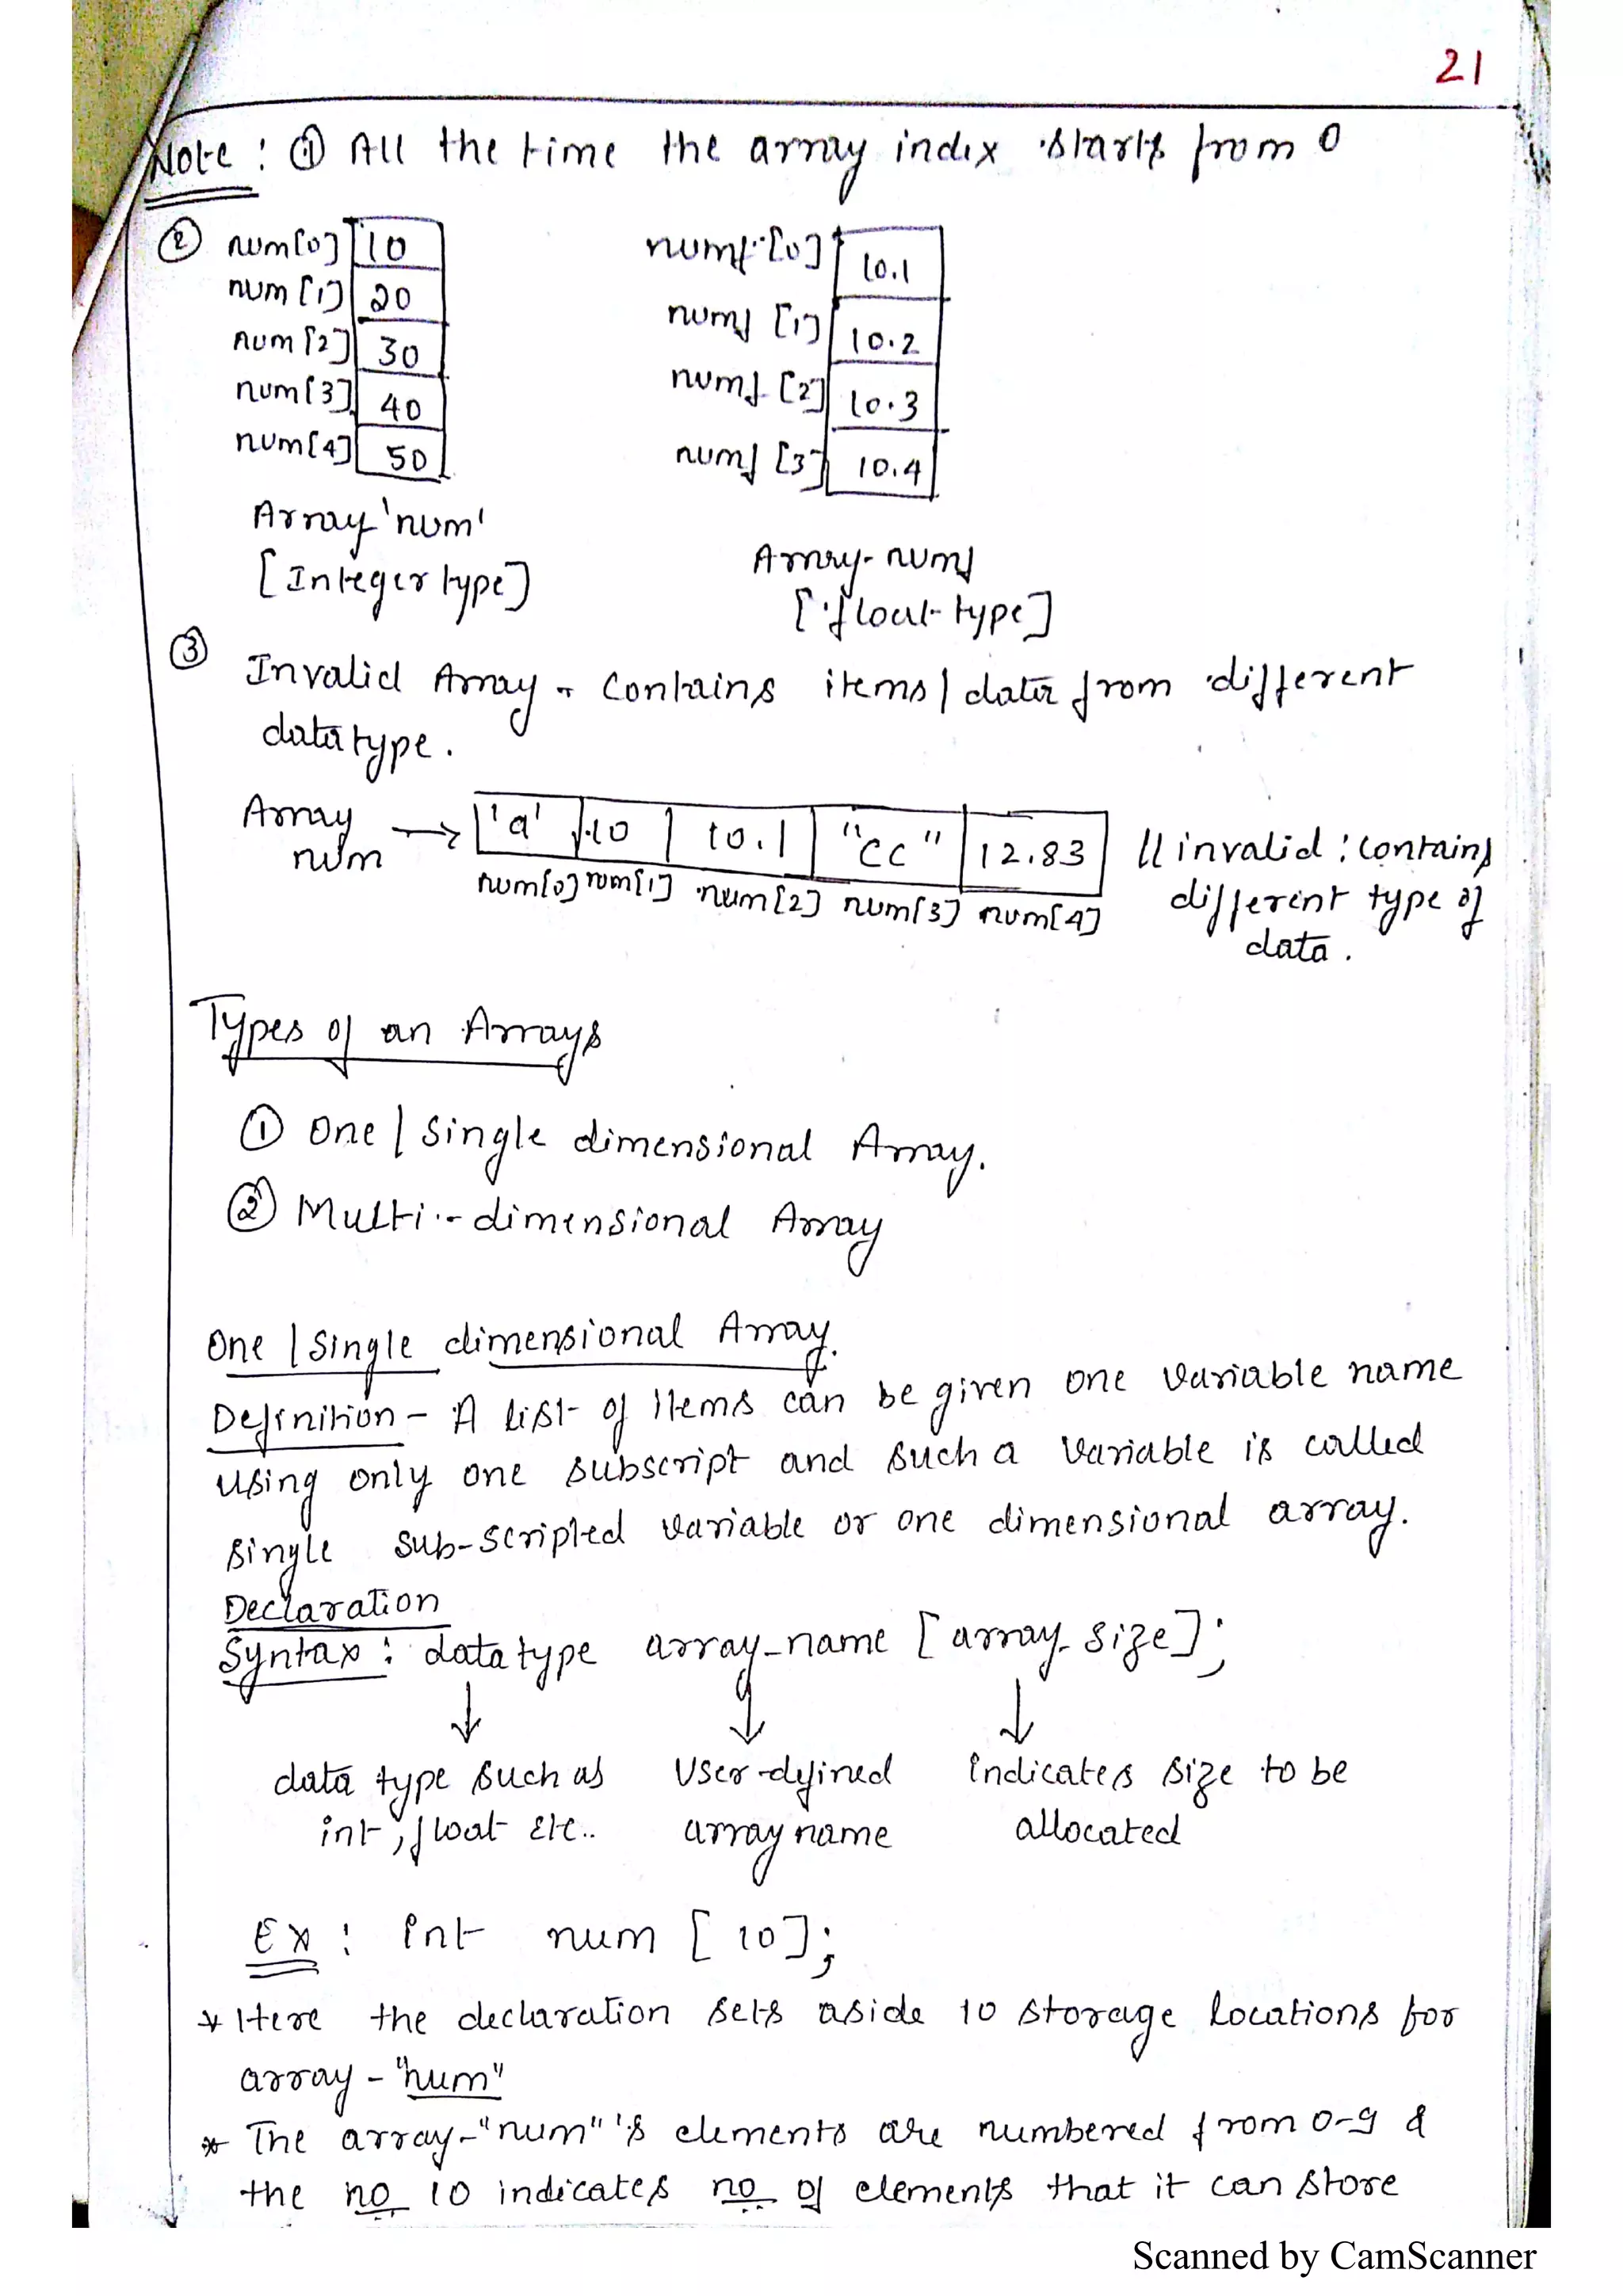 21
Note : ① All the time the array index starts from 0
②
num[0] 10
num[1] 20
num[2] 30
num[3] 40
num[4] 50
Array 'num'
[Integer type]
numf [0] 10.1
numf [1] 10.2
numf [2] 10.3
numf [3] 10.4
Array- numf
[float type]
③ Invalid Array - Contains items / data from different
datatype.
Array num → 'a' 10 10.1 "CC" 12.83 // invalid : Contains
num[0] num[1] num[2] num[3] num[4] different type of
data.
Types of an Arrays
① One / Single dimensional Array.
② Multi - dimensional Array
One / Single dimensional Array.
Definition - A list of items can be given one variable name
using only one subscript and such a variable is called
single sub-scripted variable or one dimensional array.
Declaration
Syntax : data type array_name [array_size];
↓ ↓ ↓
data type such as User-defined indicates size to be
int, float etc.. array name allocated
Ex : int num [10];
* Here the declaration sets aside 10 storage locations for
array - "num"
* The array-"num"'s elements are numbered from 0-9 &
the no 10 indicates no of elements that it can store
Scanned by CamScanner